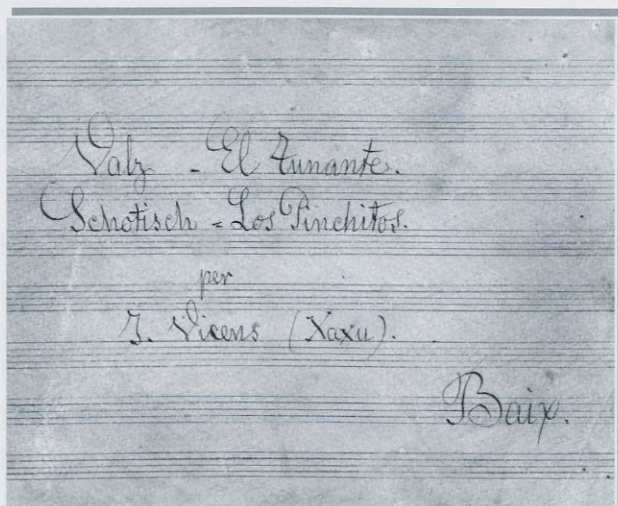 Valz - El Tunante.
Schotisch = Los Pinchitos.
per
J. Vicens (Xaxu).
Baix.